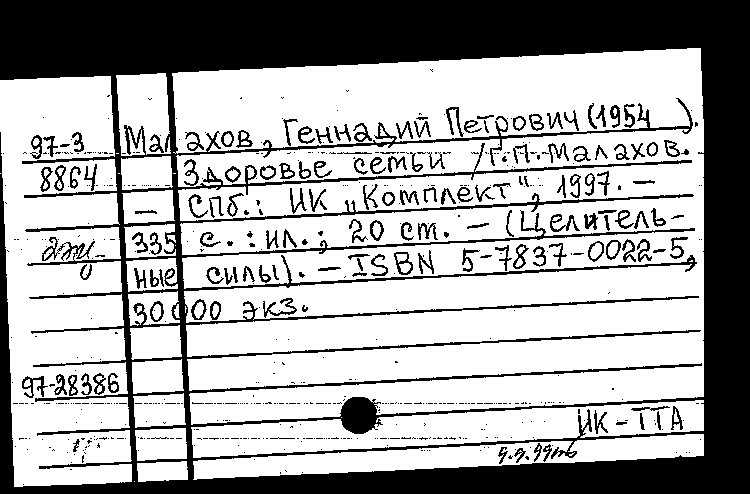 97-3 Малахов, Геннадий Петрович (1954 ).
8864 Здоровье семьи / Г.П. Малахов.
— СПб.: ИК „Комплект“, 1997. —
2эк. 335 с. : ил.; 20 см. — (Целитель-
ные силы). — ISBN 5-7837-0022-5,
30000 экз.
97-28386
ИК-ТТА